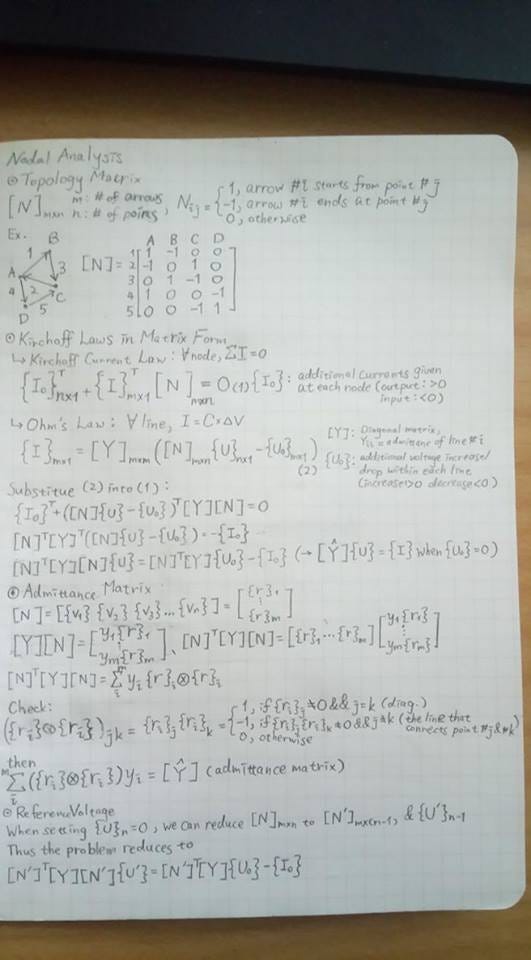 Nodal Analysis
⊙Topology Matrix
[N]m×n m: # of arrows n: # of poins, Nij = { 1, arrow #i starts from point #j
-1, arrow #i ends at point #j
0, otherwise
Ex.
A B C D 1 2 3 4 5
[N]=
A B C D
1 1 -1 0 0
2 -1 0 1 0
3 0 1 -1 0
4 1 0 0 -1
5 0 0 -1 1
⊙Kirchoff Laws in Matrix Form
↳ Kirchoff Current Law: ∀node, ΣI=0
{I₀}ᵀn×1 + {I}ᵀm×1 [N]m×n = 0 (1) {I₀}: additional currents given
at each node (output: >0
input: <0)
↳ Ohm's Law: ∀ line, I = C×ΔV
{I}m×1 = [Y]m×m ([N]m×n {U}n×1 - {U₀}m×1) (2)
[Y]: Diagonal matrix,
Yii = admittane of line #i
{U₀}: additional voltage increase/
drop within each line
(increase>0 decrease<0)
Substitue (2) into (1):
{I₀}ᵀ+([N]{U}-{U₀})ᵀ[Y][N]=0
[N]ᵀ[Y]ᵀ([N]{U}-{U₀})=-{I₀}
[N]ᵀ[Y][N]{U}=[N]ᵀ[Y]{U₀}-{I₀} (→ [Ŷ]{U}={I} when {U₀}=0)
⊙ Admittance Matrix
[N]=[{v₁} {v₂} {v₃}... {vn}]=[{r}₁ ⋮ {r}m]
[Y][N]=[y₁{r}₁ ⋮ ym{r}m]、[N]ᵀ[Y][N]=[{r}₁...{r}m][y₁{r₁} ⋮ ym{rm}]
[N]ᵀ[Y][N]=Σᵢᵐ yᵢ{r}ᵢ⊗{r}ᵢ
Check:
({rᵢ}⊗{rᵢ})jk = {rᵢ}j{rᵢ}k = { 1, if {rᵢ}j≠0 && j=k (diag.)
-1, if {rᵢ}j{rᵢ}k≠0 && j≠k (the line that
connects point #j & #k)
0, otherwise
then
Σᵢᵐ({rᵢ}⊗{rᵢ})yᵢ=[Ŷ] (admittance matrix)
⊙ Reference Voltage
When setting {U}n=0, we can reduce [N]m×n to [N']m×(n-1), & {U'}n-1
Thus the problem reduces to
[N']ᵀ[Y][N']{U'}=[N']ᵀ[Y]{U₀}-{I₀}